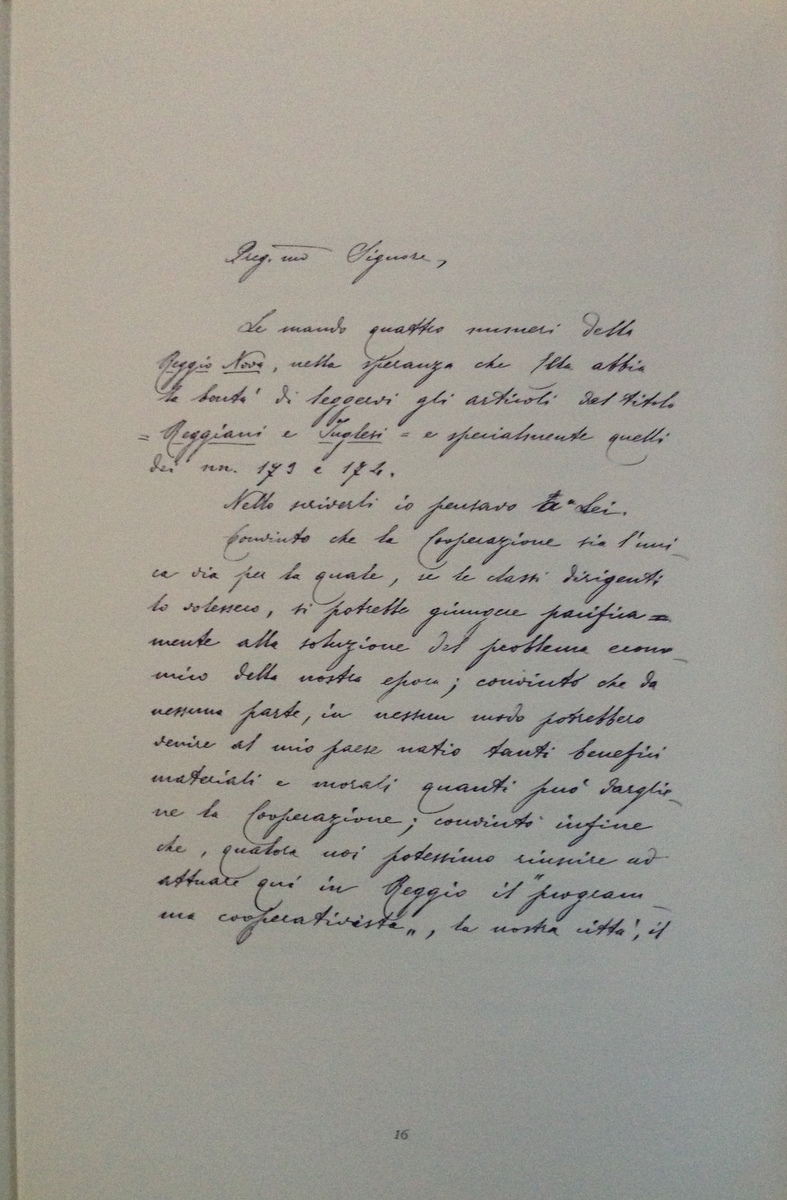 Preg.mo Signore,
Le mando quattro numeri della
Reggio Nova, nella speranza che Ella abbia
la bontà di leggervi gli articoli dal titolo
= Reggiani e Inglesi = e specialmente quelli
dei nn. 173 e 174.
Nello scriverli io pensavo a Lei.
Convinto che la Cooperazione sia l'uni-
ca via per la quale, se le classi dirigenti
lo volessero, si potrebbe giungere pacifica=
mente alla soluzione del problema econo-
mico della nostra epoca; convinto che da
nessuna parte, in nessun modo potrebbero
venire al mio paese natio tanti benefici
materiali e morali quanti può darglie-
ne la Cooperazione; convinto infine
che, qualora noi potessimo riuscire ad
attuare qui in Reggio il "program-
ma cooperativista„, la nostra città, il
16